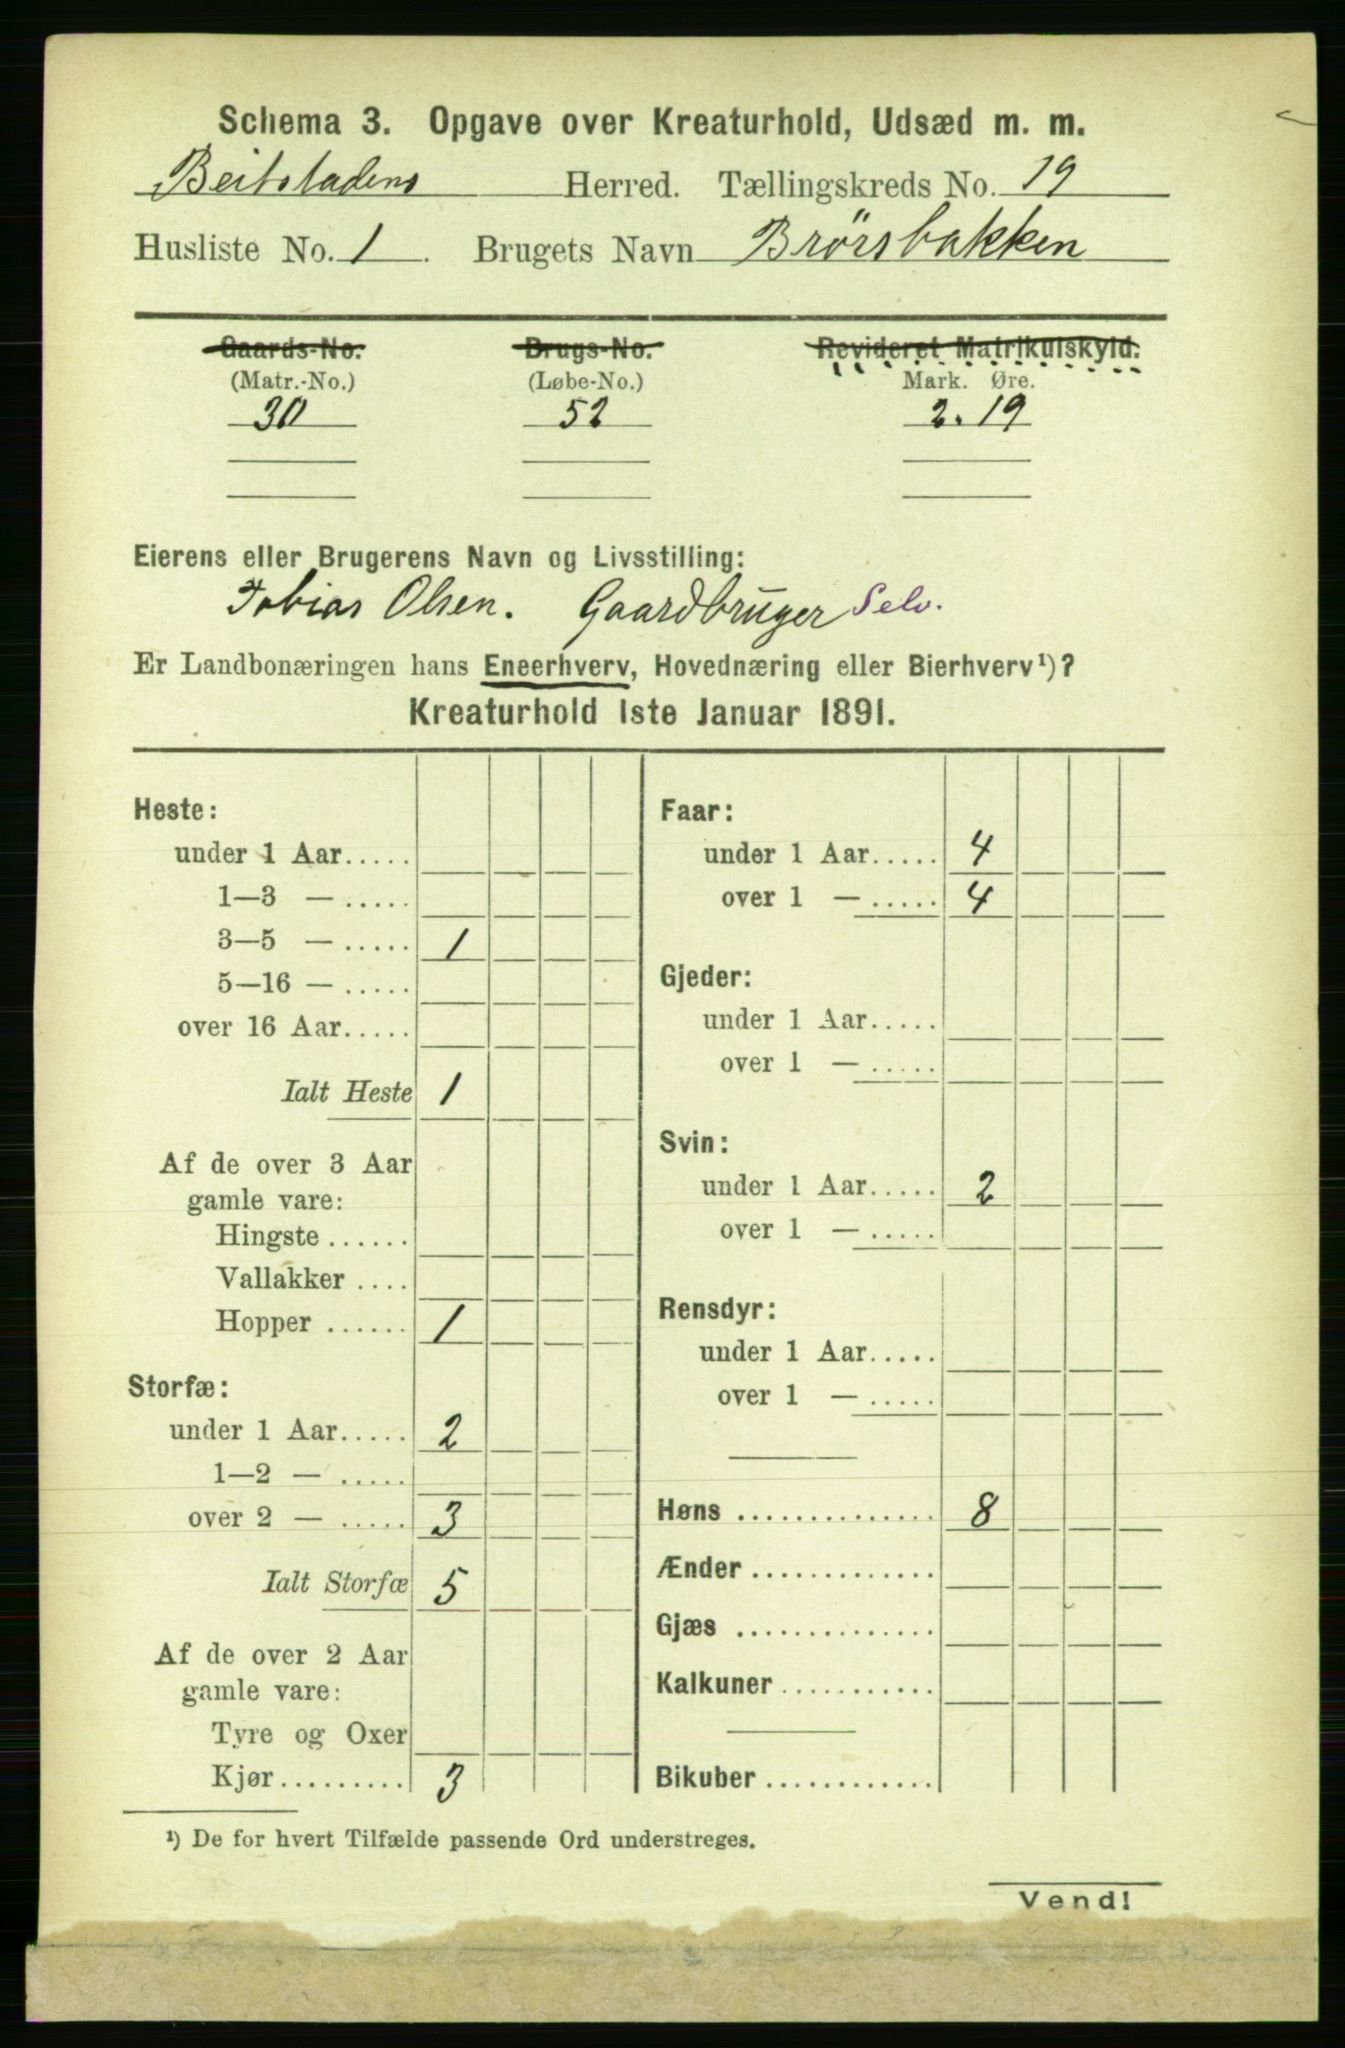 Schema 3. Opgave over Kreaturhold, Udsæd m. m.
Beitstadens Herred. Tællingskreds No. 19
Husliste No. 1. Brugets Navn Brörsbakken
Gaards-No. Brugs-No. Revideret Matrikulskyld.
(Matr.-No.) (Løbe-No.) Mark. Øre.
30 52 2.19
Eierens eller Brugerens Navn og Livsstilling:
Tobias Olsen. Gaardbruger Selv.
Er Landbonæringen hans Eneerhverv, Hovednæring eller Bierhverv¹)?
Kreaturhold 1ste Januar 1891.
Heste:
under 1 Aar.....
1—3 — .....
3—5 — ..... 1
5—16 — .....
over 16 Aar.....
Ialt Heste 1
Af de over 3 Aar
gamle vare:
Hingste ......
Vallakker ....
Hopper ...... 1
Storfæ:
under 1 Aar..... 2
1—2 — .....
over 2 — ..... 3
Ialt Storfæ 5
Af de over 2 Aar
gamle vare:
Tyre og Oxer
Kjør......... 3
Faar:
under 1 Aar..... 4
over 1 — ..... 4
Gjeder:
under 1 Aar.....
over 1 — .....
Svin:
under 1 Aar..... 2
over 1 — .....
Rensdyr:
under 1 Aar.....
over 1 — .....
Høns .............. 8
Ænder .............
Gjæs ..............
Kalkuner...........
Bikuber ............
¹) De for hvert Tilfælde passende Ord understreges.
Vend!